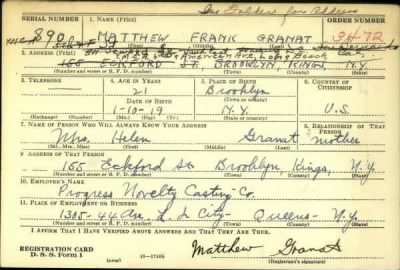 See Folders for Address
SERIAL NUMBER
1. NAME (Print)
ORDER NUMBER
890
MATTHEW FRANK GRANAT
3472
(First) (Middle) (Last)
2. ADDRESS (Print)
155 ECKFORD ST. BROOKLYN, KINGS, N.Y.
(Number and street or R. F. D. number) (Town) (County) (State)
3. TELEPHONE
4. AGE IN YEARS
5. PLACE OF BIRTH
6. COUNTRY OF CITIZENSHIP
21
Brooklyn
(Town or county)
DATE OF BIRTH
1-10-19
N.Y.
U.S.
(Exchange) (Number)
(Mo.) (Day) (Yr.)
(State or country)
7. NAME OF PERSON WHO WILL ALWAYS KNOW YOUR ADDRESS
8. RELATIONSHIP OF THAT PERSON
Mrs. Helen Granat mother
(Mr., Mrs., Miss) (First) (Middle) (Last)
9. ADDRESS OF THAT PERSON
155 Eckford St. Brooklyn, Kings, N.Y.
(Number and street or R. F. D. number) (Town) (County) (State)
10. EMPLOYER'S NAME
Progress Novelty Casting Co.
11. PLACE OF EMPLOYMENT OR BUSINESS
1305-44 Ave. L. I. City- Queens- N.Y.
(Number and street or R. F. D. number) (Town) (County) (State)
I AFFIRM THAT I HAVE VERIFIED ABOVE ANSWERS AND THAT THEY ARE TRUE.
REGISTRATION CARD
D. S. S. Form 1
16-17105
Matthew Granat
(Registrant's signature)